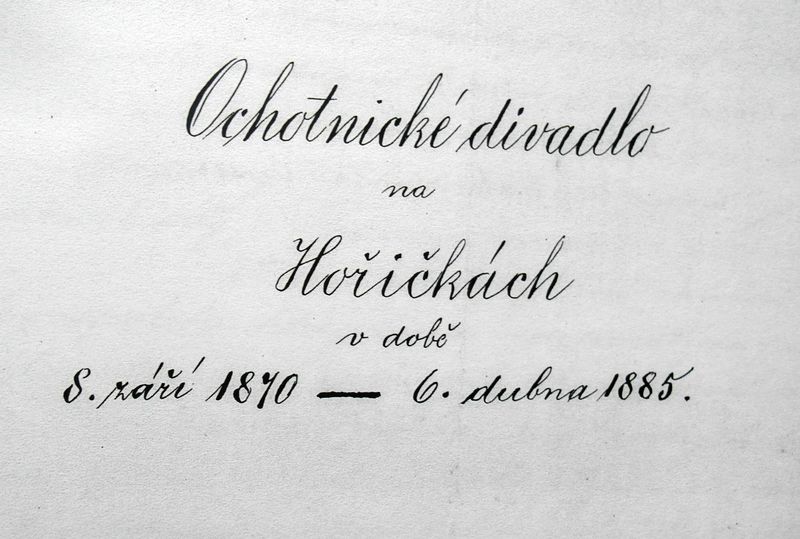 Ochotnické divadlo
na
Hořičkách
v době
8. září 1870 — 6. dubna 1885.